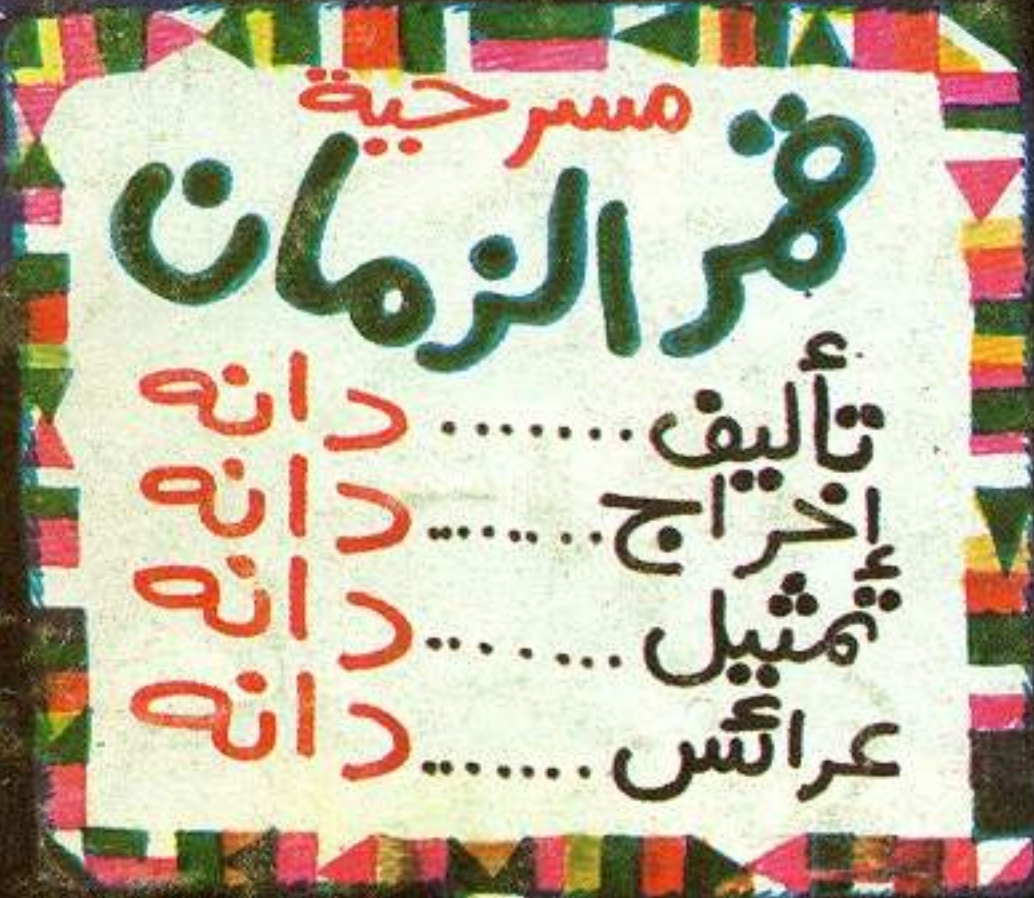 مسرحية
قمر الزمان
تأليف ....... دانه
إخراج ....... دانه
تمثيل ....... دانه
عرائس ....... دانه